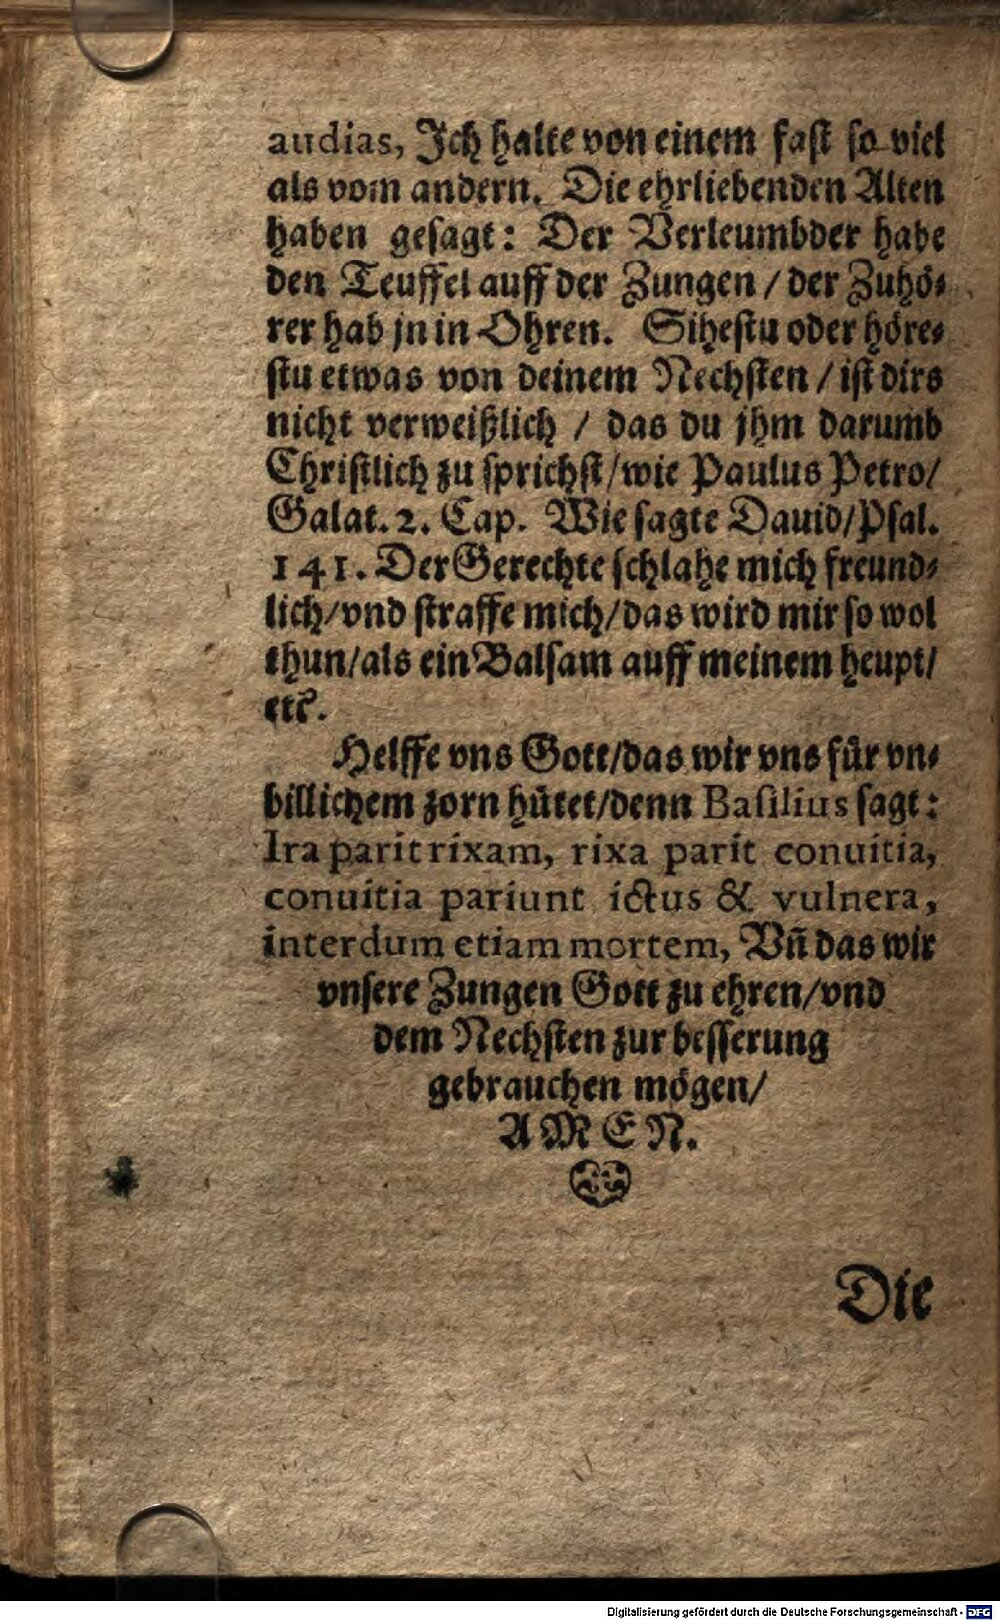 audias, Ich halte von einem fast so viel
als vom andern. Die ehrliebenden Alten
haben gesagt: Der Verleumbder habe
den Teuffel auff der Zungen / der Zuhö⸗
rer hab jn in Ohren. Sihestu oder höre⸗
stu etwas von deinem Nechsten / ist dirs
nicht verweißlich / das du jhm darumb
Christlich zu sprichst/wie Paulus Petro/
Galat. 2. Cap. Wie sagte Dauid/Psal.
141. Der Gerechte schlahe mich freund⸗
lich/vnd straffe mich/das wird mir so wol
thun/als ein Balsam auff meinem heupt/
etc.
Helffe vns Gott/das wir vns für vn⸗
billichem zorn hütet/denn Basilius sagt:
Ira parit rixam, rixa parit conuitia,
conuitia pariunt ictus & vulnera,
interdum etiam mortem, Vñ das wir
vnsere Zungen Gott zu ehren/vnd
dem Nechsten zur besserung
gebrauchen mögen/
AMEN.
Die
Digitalisierung gefördert durch die Deutsche Forschungsgemeinschaft - DFG